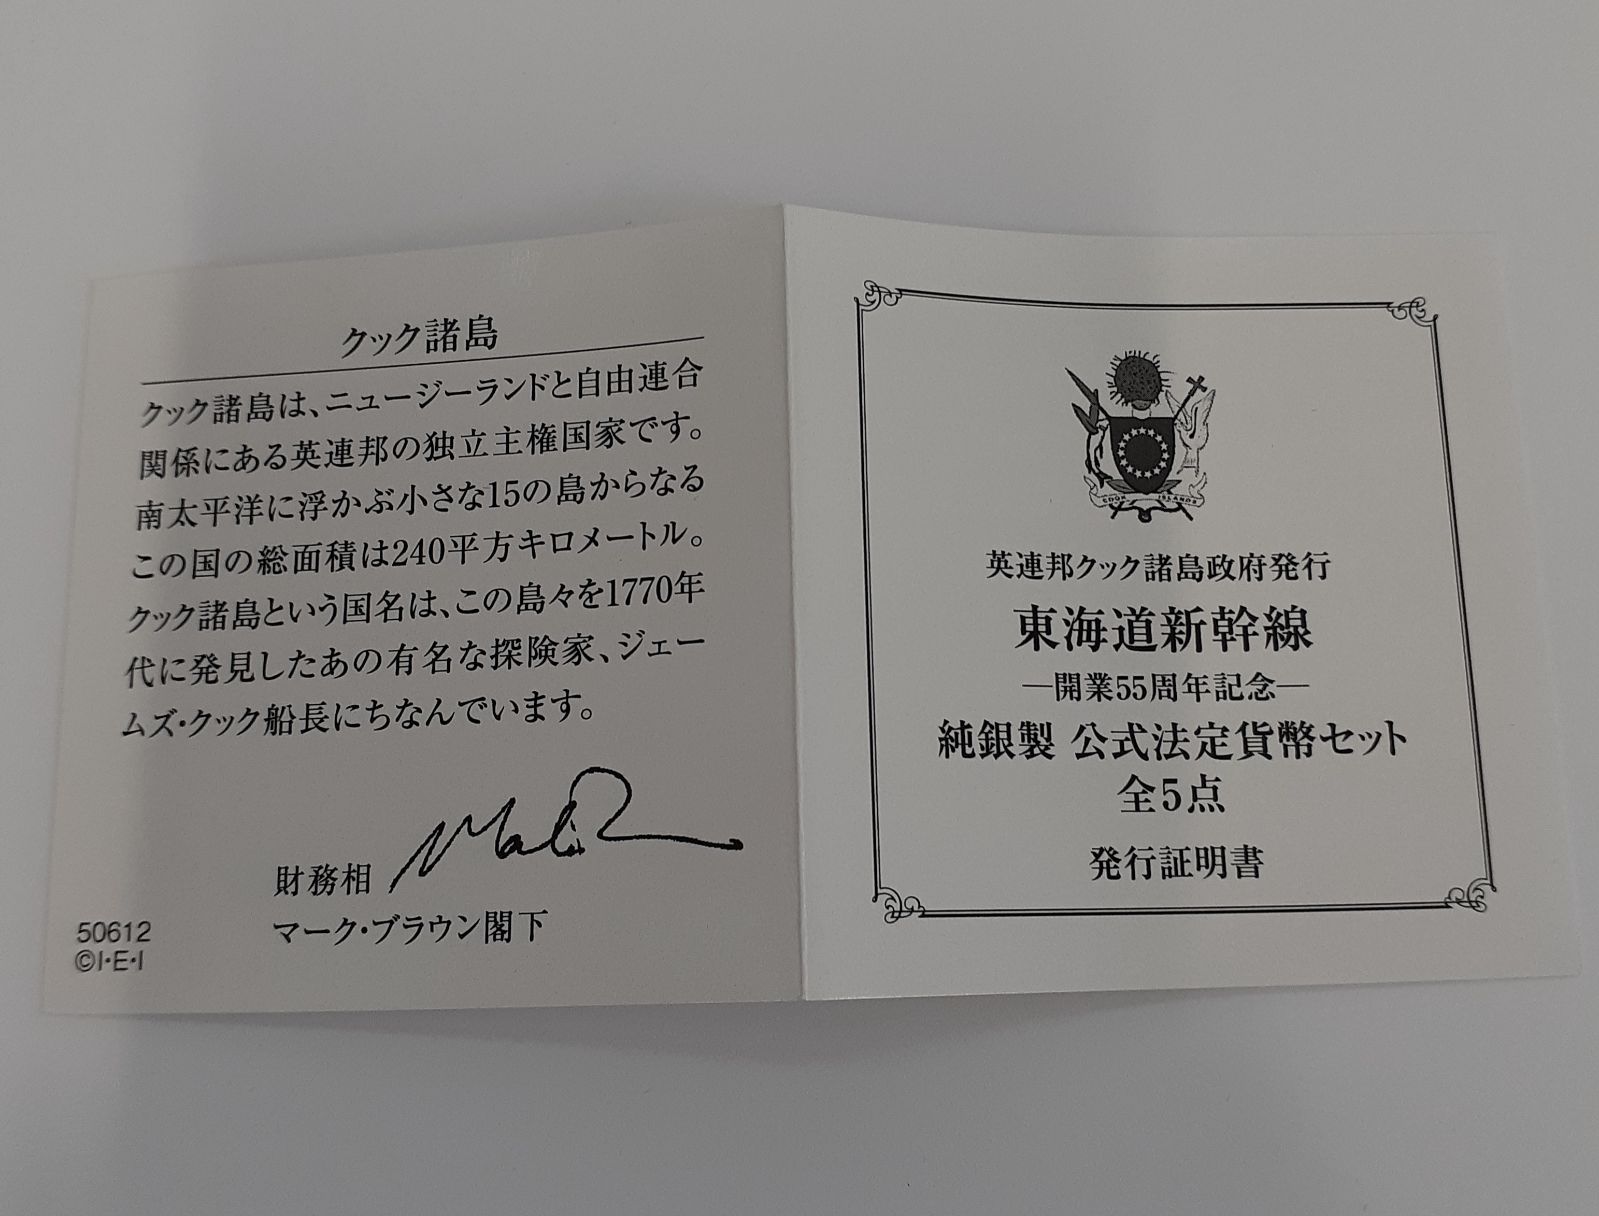 クック諸島
クック諸島は、ニュージーランドと自由連合
関係にある英連邦の独立主権国家です。
南太平洋に浮かぶ小さな15の島からなる
この国の総面積は240平方キロメートル。
クック諸島という国名は、この島々を1770年
代に発見したあの有名な探険家、ジェー
ムズ・クック船長にちなんでいます。
財務相
マーク・ブラウン閣下
50612
©I・E・I
COOK ISLANDS
英連邦クック諸島政府発行
東海道新幹線
―開業55周年記念―
純銀製 公式法定貨幣セット
全5点
発行証明書